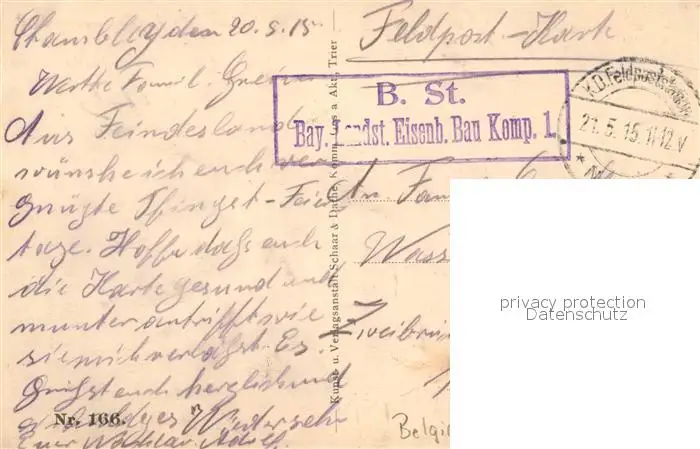 den 20.5.15
Werthe Famil.
Aus Feindesland
wünsche ich euch ver
gnügte Pfingst-Feier
tage. Hoffe dass euch
die Karte gesund und
munter antrifft wie
sie mich verlässt. Es
Grüsst euch herzlich und
Wiedersehn
Euer Adolf.
Nr. 166.
Kunst- u. Verlagsanstalt Schaar & Dathe, Komm.-Ges. a. Akt., Trier
Feldpost-Karte
B. St.
Bay. Landst. Eisenb. Bau Komp. 1.
K.D. Feldpost
21.5.15. 11-12 V
An Fam
Wass
Zweibrü
Belgi
privacy protection
Datenschutz